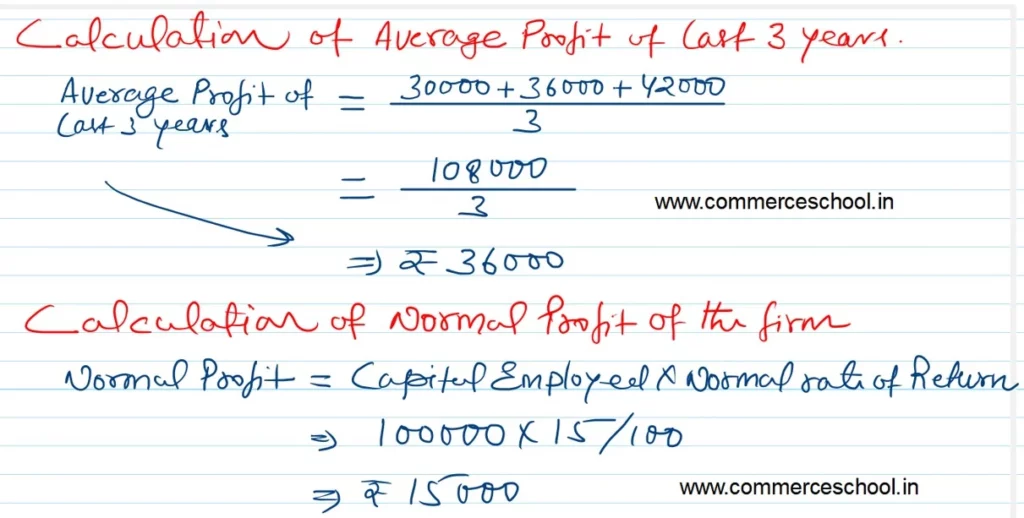 Calculation of Average Profit of Last 3 years.
Average Profit of Last 3 years = 30000 + 36000 + 42000 / 3
= 108000 / 3
www.commerceschool.in
⇒ ₹ 36000
Calculation of Normal Profit of the firm
Normal Profit = Capital Employed × Normal rate of Return
⇒ 100000 × 15/100
⇒ ₹ 15000
www.commerceschool.in